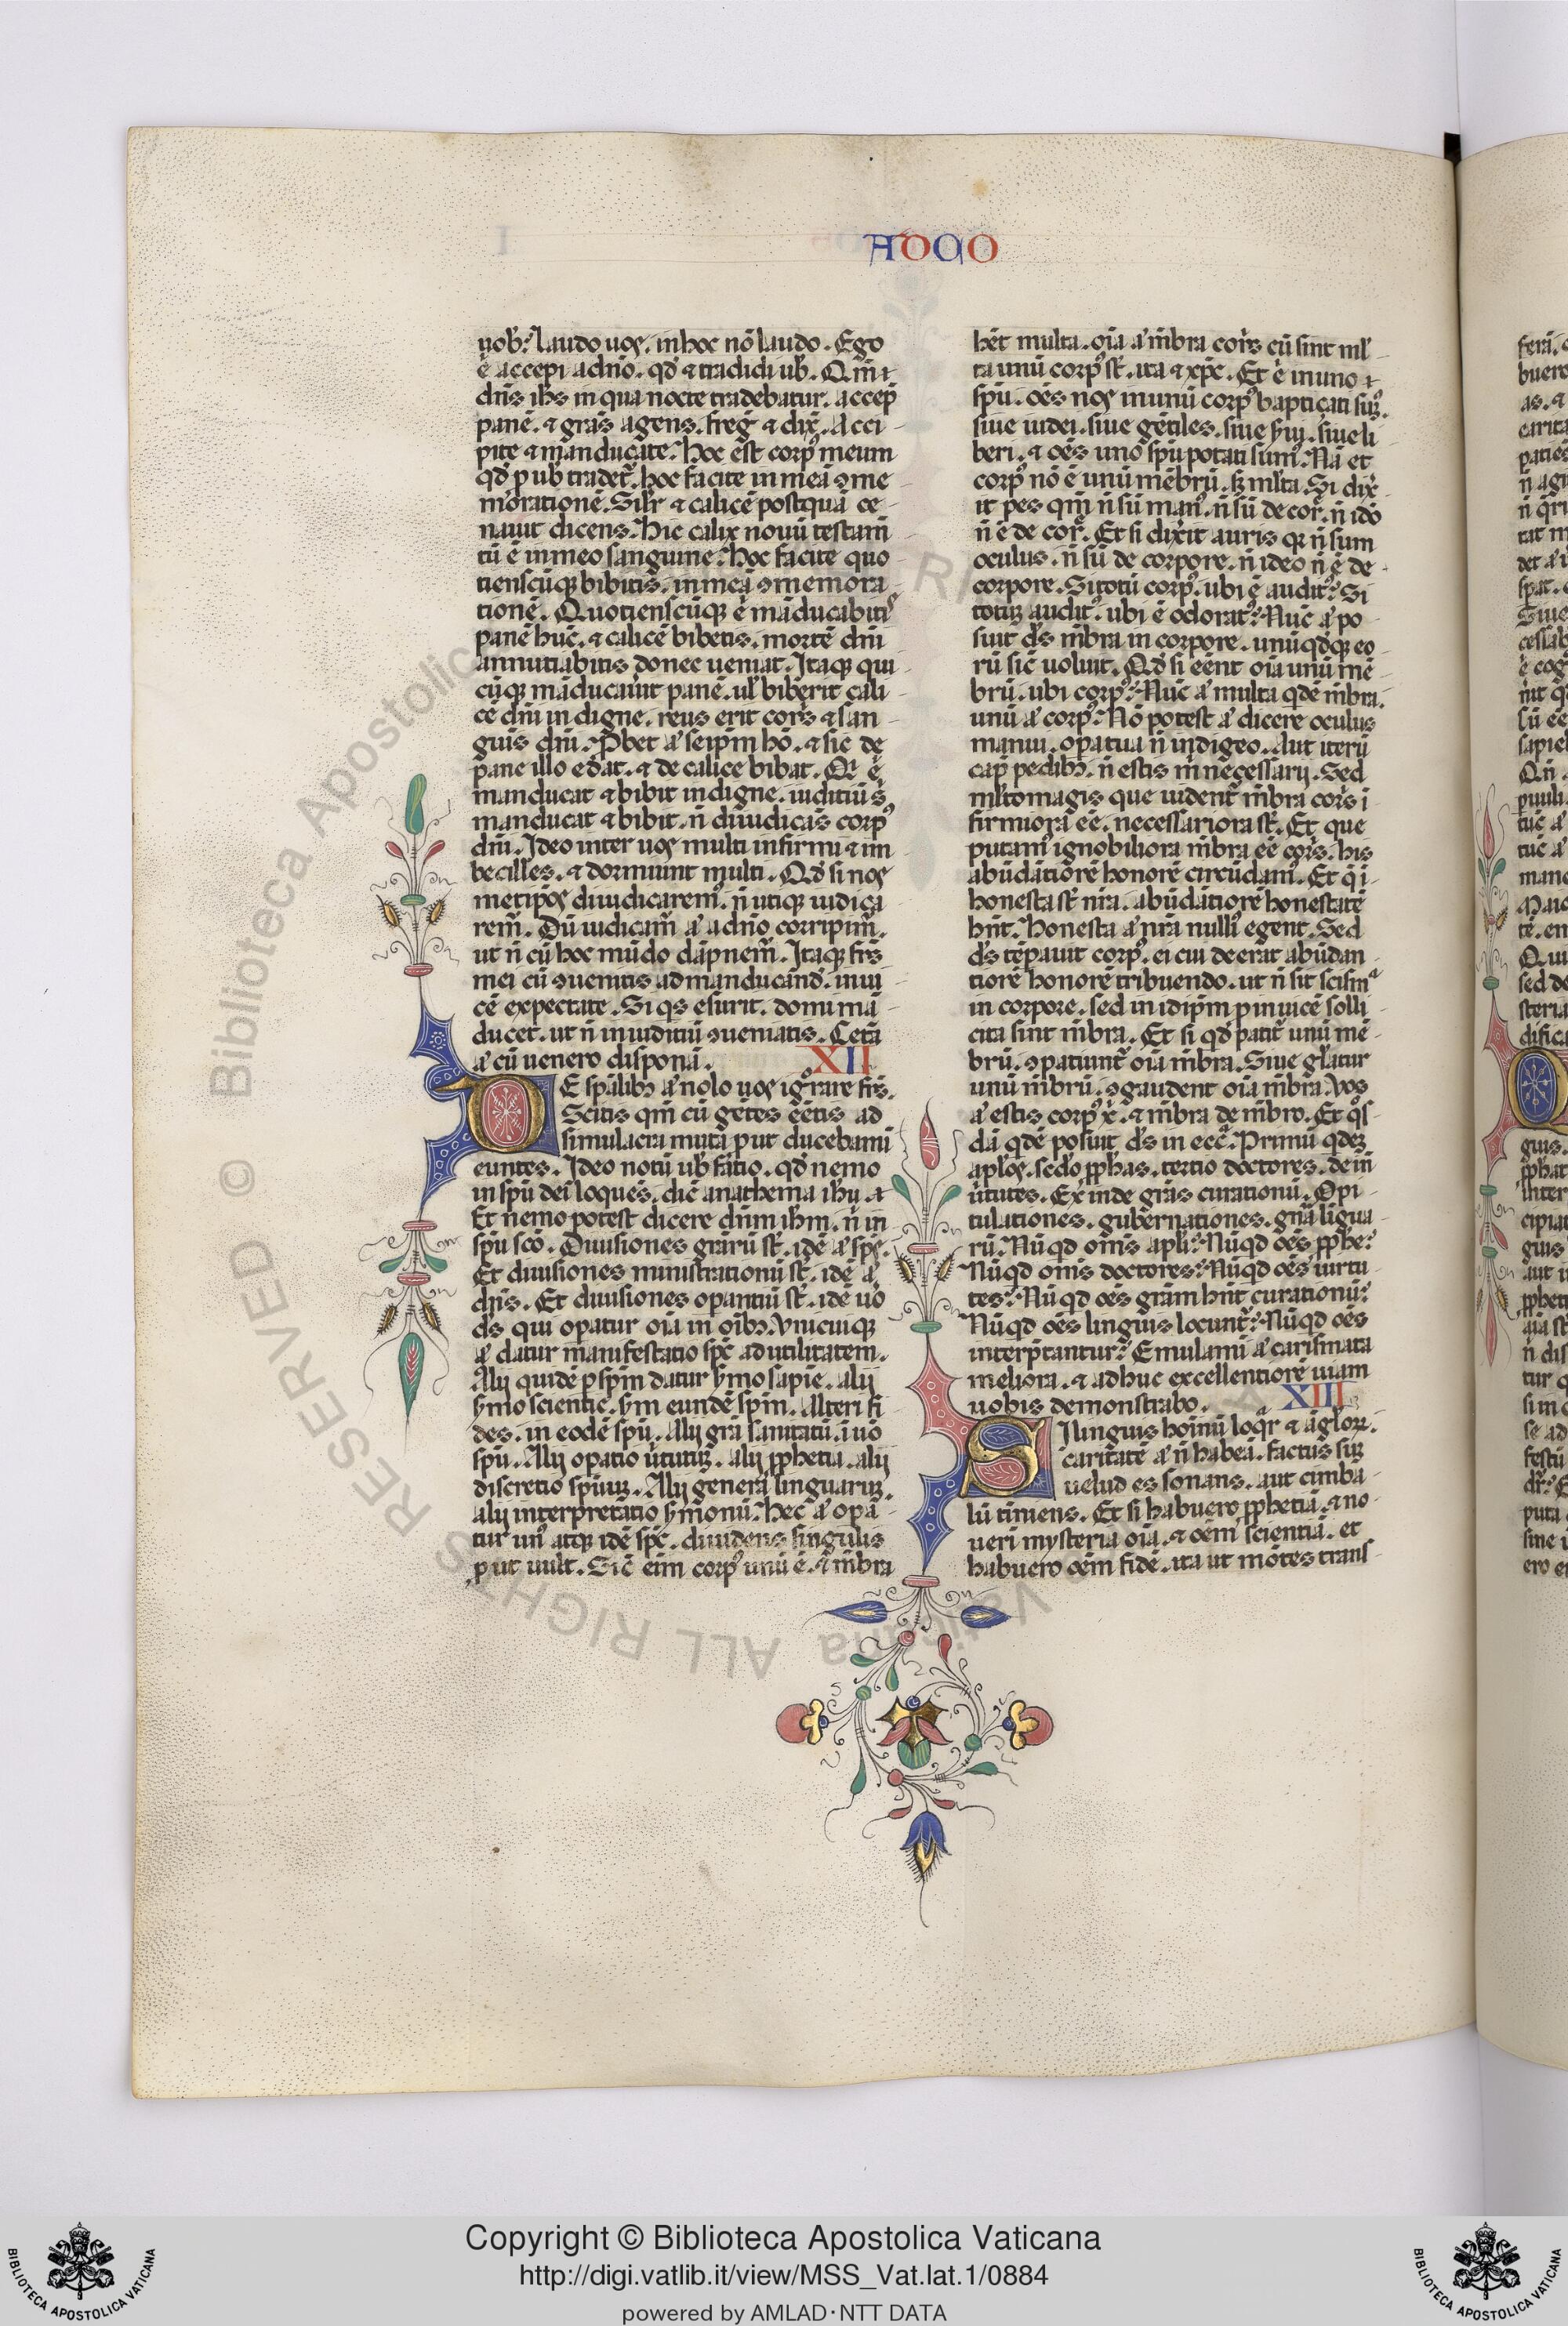 ADCO
uob̄? laudo uos. in hoc nō laudo. Ego
ē accepi a dn̄o. qđ & tradidi ub̄. Qm̄
dn̄s ih̄s in qua nocte tradebatur. accep̄
panē. & grās agens. freḡ & dix̄. Acci
pite & manducate. Hoc est corpꝰ meum
qđ p ub̄ tradet᷑. hoc facite in meā ꝯme
morationē. Sil̄r & calicē postquā ce
nauit dicens. Hic calix nouū testam̄
tū ē in meo sanguine. Hoc facite quo
tienscūqꝫ bibitis. in meā ꝯmemora
tionē. Quotienscūqꝫ ē māducabitis
panē hūc. & calicē bibetis. mortē dn̄i
annuntiabitis donec ueniat. Itaqꝫ qui
cūqꝫ māducau̇it panē. ul̄ biberit cali
cē dn̄i indigne. reus erit cor̄s & san
guis dn̄i. Ꝓbet a᷑ seip̄m hō. & sic de
pane illo edat. & de calice bibat. Qi ē
manducat & bibit indigne. iuditiū s̄
manducat & bibit. n̄ diiudicās corpꝰ
dn̄i. Ideo inter uos multi infirmi & im
becilles. & dormiunt multi. Qđ si nos
metip̄os diiudicaremꝰ. n̄ utiqꝫ iudica
rem̄. Dū iudicam̄ a᷑ a dn̄o corripim̄.
ut n̄ cū hoc mūdo dāpnem̄. Itaqꝫ fr̄s
mei cū ꝯuenitis ad manducānd̄. inui
cē expectate. Si qs esurit. domi mā
ducet. ut n̄ in iuditiū ꝯueniatis. Cetā
a᷑ cū uenero disponā. XII
DE sp̄alibꝫ a᷑ nolo uos igrāre fr̄s.
Scitis qm̄ cū gētes eētis ad
simulacra muta put ducebami
euntes. Ideo notū ub̄ fatio. qđ nemo
in sp̄u dei loquēs. dic̄ anathema ih̄u.
Et nemo potest dicere dn̄m ih̄m. n̄ in
sp̄u sc̄o. Diuisiones grārū st̄. idē a᷑ sp̄s.
Et diuisiones ministrationū st̄. idē a᷑
dn̄s. Et diuisiones opantiū st̄. idē uō
ds̄ qui opatur oīa in oībꝫ. Vnicuiqꝫ
a᷑ datur manifestatio sp̄c ad utilitatem.
Alij quidē p sp̄m datur s̄mo sapie. alij
s̄mo scientie. s̄m eundē sp̄m. Alteri fi
des. in eodē sp̄u. Alij grā sanitatū. ī uō
sp̄u. Alij opatio u̇tutū. alij ꝓphetia. alij
discretio sp̄uū. Alij genera linguarū.
alij interpretatio s̄monū. Hec a᷑ opā
tur unꝰ atqꝫ idē sp̄c. diuidens singulis
put uult. Sic̄ eim̄ corpꝰ unū ē. & m̄bra
hēt multa. oīa a᷑ m̄bra cor̄s cū sint ml̄
ta unū corpꝰ st̄. ita & xp̄c. Et ē in uno
sp̄u. oēs nos in unū corpꝰ bapticati sumꝰ.
siue iudei. siue gētiles. siue s̄ui. siue li
beri. & oēs uno sp̄u potati sumꝰ. Nā et
corpꝰ nō ē unū mēbrū. sꝫ ml̄ta. Si dix̄
it pes qm̄ n̄ sū manꝰ. n̄ sū de cor̄. n̄ idō
n̄ ē de cor̄. Et si dixīt auris qꝛ n̄ sum
oculus. n̄ sū de corpore. n̄ ideo n̄ ē de
corpore. Si totū corpꝰ. ubi ē auditꝰ? Si
totū auditꝰ. ubi ē odoratꝰ? Nūc a᷑ po
suit ds̄ m̄bra in corpore. unūqđqꝫ eo
rū sic̄ uoluit. Qđ si eēnt oīa unū mē
brū. ubi corpꝰ? Nūc a᷑ multa qdē m̄bra.
unū a᷑ corpꝰ. Nō potest a᷑ dicere oculus
manui. opa tua n̄ indigeo. Aut iterū
cap̄ pedibꝫ. n̄ estis m̄ necessarij. Sed
ml̄to magis que uident᷑ m̄bra cor̄s ī
firmiora eē. necessariora st̄. Et que
putamꝰ ignobiliora m̄bra eē cor̄s. his
abūdātiorē honorē circūdam̄. Et q̄ ī
honesta st̄ nr̄a. abūdātiorē honestatē
hn̄t. Honesta a᷑ nr̄a nulliꝰ egent. Sed
ds̄ tēpauit corpꝰ. ei cui deerat abūdan
tiorē honorē tribuendo. ut n̄ sit scism̄a
in corpore. sed in idip̄m p inuicē solli
cita sint m̄bra. Et si qđ patit᷑ unū mē
brū. ꝯpatiunt᷑ oīa m̄bra. Siue gl̄atur
unū m̄brū. ꝯgaudent oīa m̄bra. Vos
a᷑ estis corpꝰ x̄. & m̄bra de m̄bro. Et qs
dā qdē posuit ds̄ in ecc̄. Primū qdeꝫ
apl̄os. sedo ꝓphas. tertio doctores. dein̄
u̇tutes. Exinde grās curationū. Opi
tulationes. gubernationes. gn̄a ligua
rū. Nūqđ om̄s apl̄i? Nūqđ oēs ꝓphe?
Nūqđ om̄s doctores? Nūqđ oēs uirtu
tes? Nūqđ oēs grām hn̄t curationū?
Nūqđ oēs linguis locunt᷑? Nūqđ oēs
interp̄tantur? Emulami a᷑ carismata
meliora. & adhuc excellentiorē uiam
uobis demonstrabo. XIII
SI linguis hoīnū loqr & āglorꝫ.
caritatē a᷑ n̄ habeā. factus sū
uelud es sonans. aut cimba
lū tiniens. Et si habuero ꝓphetiā. & no
ueri mysteria oīa. & oēm scientiā. et
habuero oēm fidē. ita ut mōtes trans
Copyright © Biblioteca Apostolica Vaticana
http://digi.vatlib.it/view/MSS_Vat.lat.1/0884
powered by AMLAD·NTT DATA
BIBLIOTECA APOSTOLICA VATICANA
BIBLIOTECA APOSTOLICA VATICANA
© Biblioteca Apostolica Vaticana ALL RIGHTS RESERVED